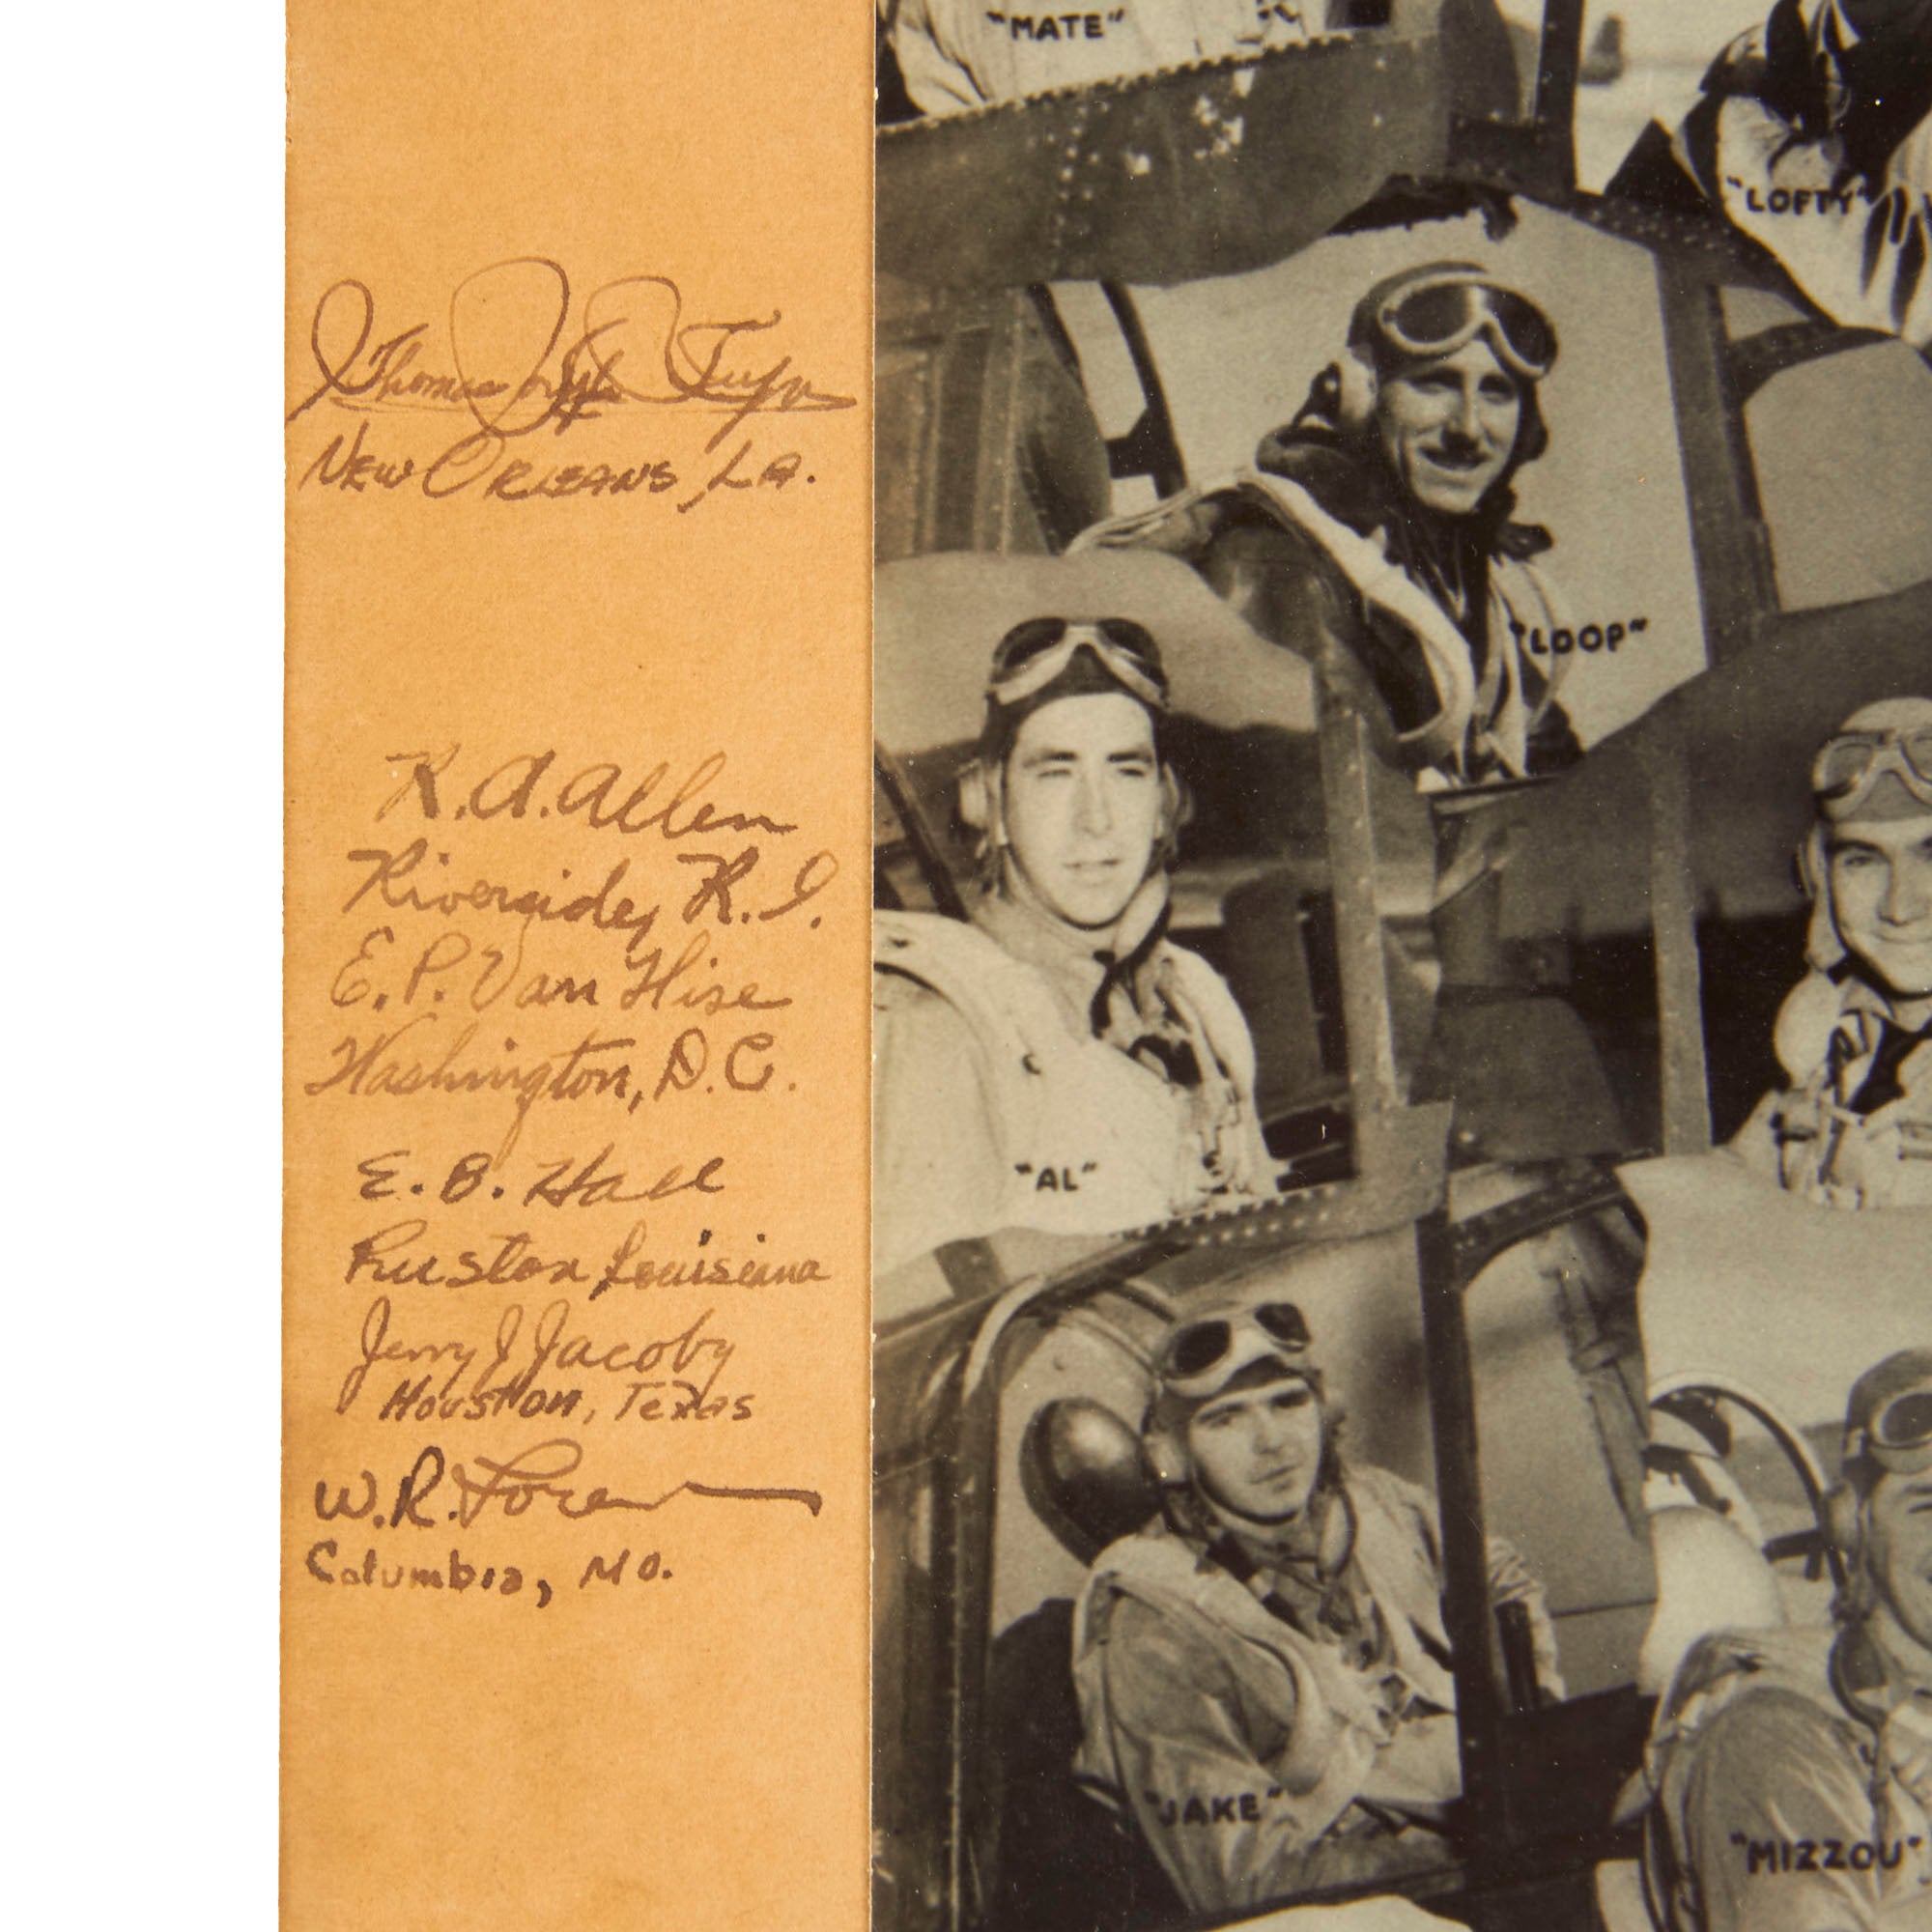 Thomas
NEW ORLEANS, LA.
R. A. Allen
Riverside, R. I.
E. P. Van Hise
Washington, D. C.
E. B. Hall
Ruston Louisiana
Jerry J Jacoby
Houston, Texas
W. R.
Columbia, MO.
"MATE"
"LOFTY"
"LOOP"
"AL"
"JAKE"
"MIZZOU"